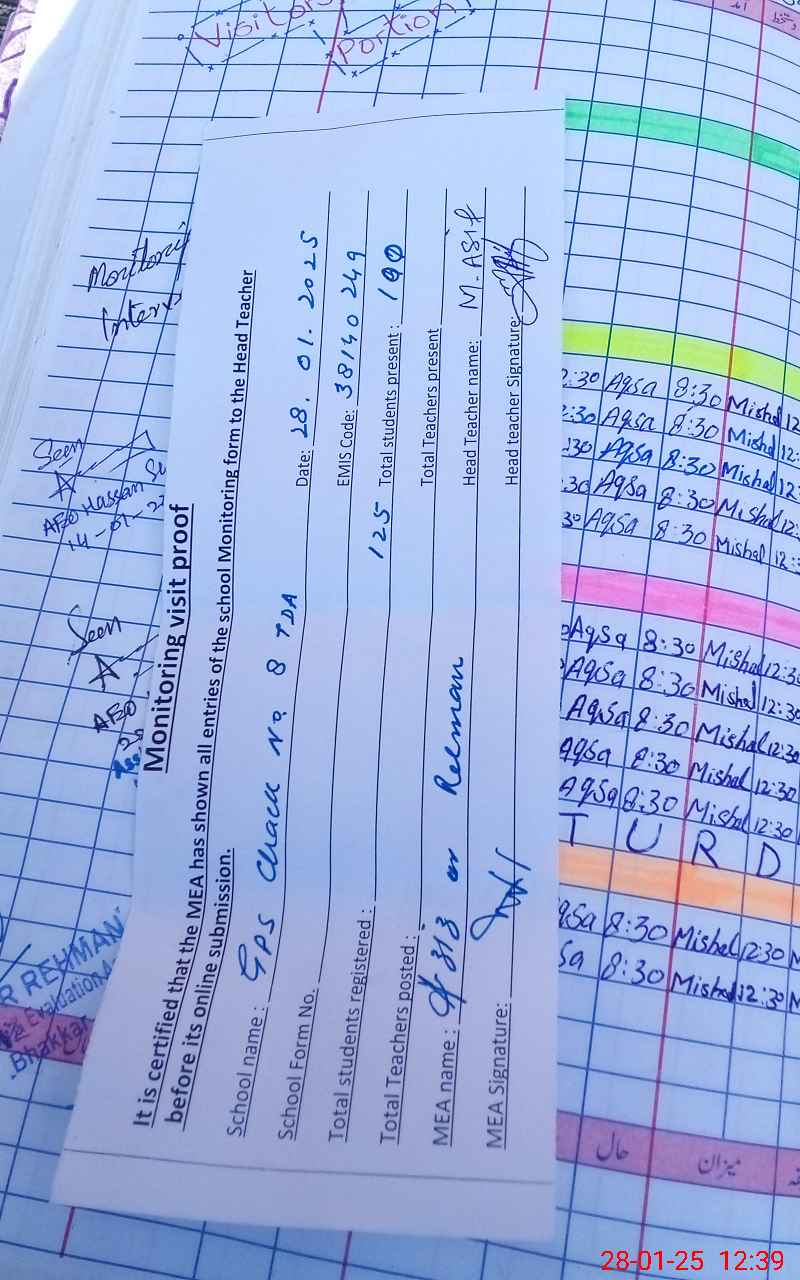 Visitors
Portion
Monitoring
Seen
AEO Hassan
14-01-2
Seen
AEO
R REHMAN
Evaluation
Bhakkar
Monitoring visit proof
It is certified that the MEA has shown all entries of the school Monitoring form to the Head Teacher
before its online submission.
School name: GPS Chack No. 8 TDA Date: 28.01.2025
School Form No. EMIS Code: 38140249
Total students registered: 125 Total students present: 100
Total Teachers posted: Total Teachers present
MEA name: Rehman Head Teacher name: M. Asif
MEA Signature: Head teacher Signature:
:30 Aqsa 8:30 Mishal 12
:30 Aqsa 8:30 Mishal 12:
:30 Aqsa 8:30 Mishal 12:
:30 Aqsa 8:30 Mishal 12:
30 Aqsa 8:30 Mishal 12:3
Aqsa 8:30 Mishal 12:30
Aqsa 8:30 Mishal 12:30
Aqsa 8:30 Mishal 12:30
Aqsa 8:30 Mishal 12:30
Aqsa 8:30 Mishal 12:30
T U R D
qsa 8:30 Mishal 12:30 M
sa 8:30 Mishal 12:30 M
حال میزان
28-01-25 12:39